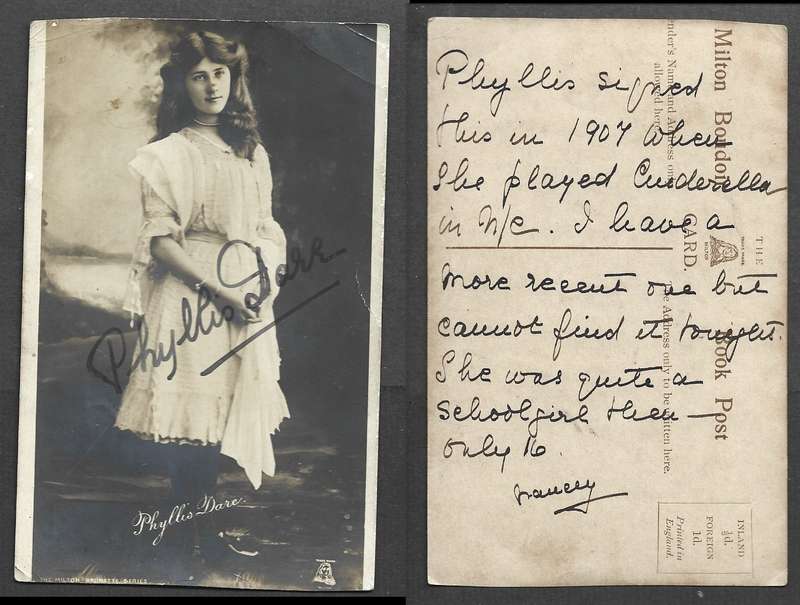 Phyllis Dare
Phyllis Dare.
THE MILTON BRUNETTE SERIES
Phyllis signed
this in 1907 when
she played Cinderella
in N/c. I have a
more recent one but
cannot find it tonight.
She was quite a
schoolgirl then —
only 16.
Nancy
THE
Milton Book Post
CARD.
MILTON
Sender's Name and Address only
allowed here.
The Address only to be written here.
INLAND
½d.
FOREIGN
1d.
Printed in
England.